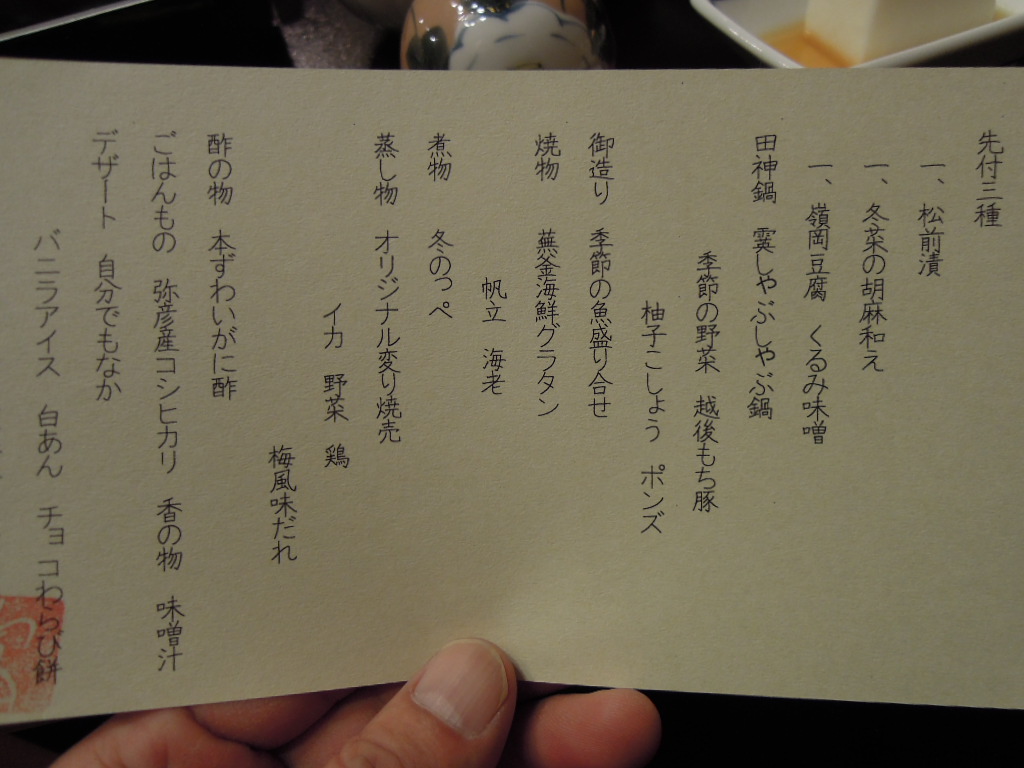 先付三種
一、松前漬
一、冬菜の胡麻和え
一、嶺岡豆腐　くるみ味噌
田神鍋　霙しゃぶしゃぶ鍋
季節の野菜　越後もち豚
柚子こしょう　ポンズ
御造り　季節の魚盛り合せ
焼物　蕪釜海鮮グラタン
帆立　海老
煮物　冬のっぺ
蒸し物　オリジナル変り焼売
イカ　野菜　鶏
梅風味だれ
酢の物　本ずわいがに酢
ごはんもの　弥彦産コシヒカリ　香の物　味噌汁
デザート　自分でもなか
バニラアイス　白あん　チョコわらび餅